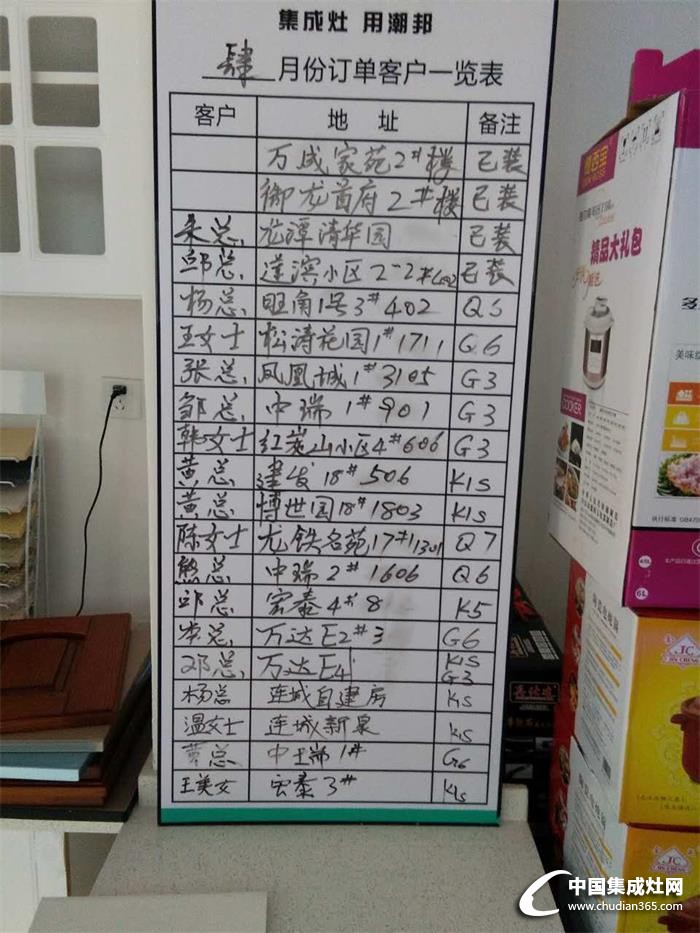 集成灶 用潮邦
肆 月份订单客户一览表
客户 地 址 备注
万成家苑2#楼 已装
御龙首府2#楼 已装
朱总 龙潭清华园 已装
邱总 莲滨小区2-2#602 已装
杨总 旺角1号3#402 Q5
王女士 松涛花园1#1711 Q6
张总 凤凰城1#3105 G3
邹总 中瑞1#901 G3
韩女士 红炭山小区4#606 G3
黄总 建发18#506 K1S
黄总 博世园18#1803 K1S
陈女士 龙铁名苑17#1301 Q7
熊总 中瑞2#1606 Q6
邱总 宏泰4#8 K5
总 万达E2#3 G6
邓总 万达E4 K1S
G3
杨总 连城自建房 K1S
温女士 连城新泉 K1S
总 中瑞1# G6
王美女 宏泰3# K1S
精品大礼包
COOKER
美味
执行标准
6L
JC
JC
中国集成灶网
www.chudian365.com